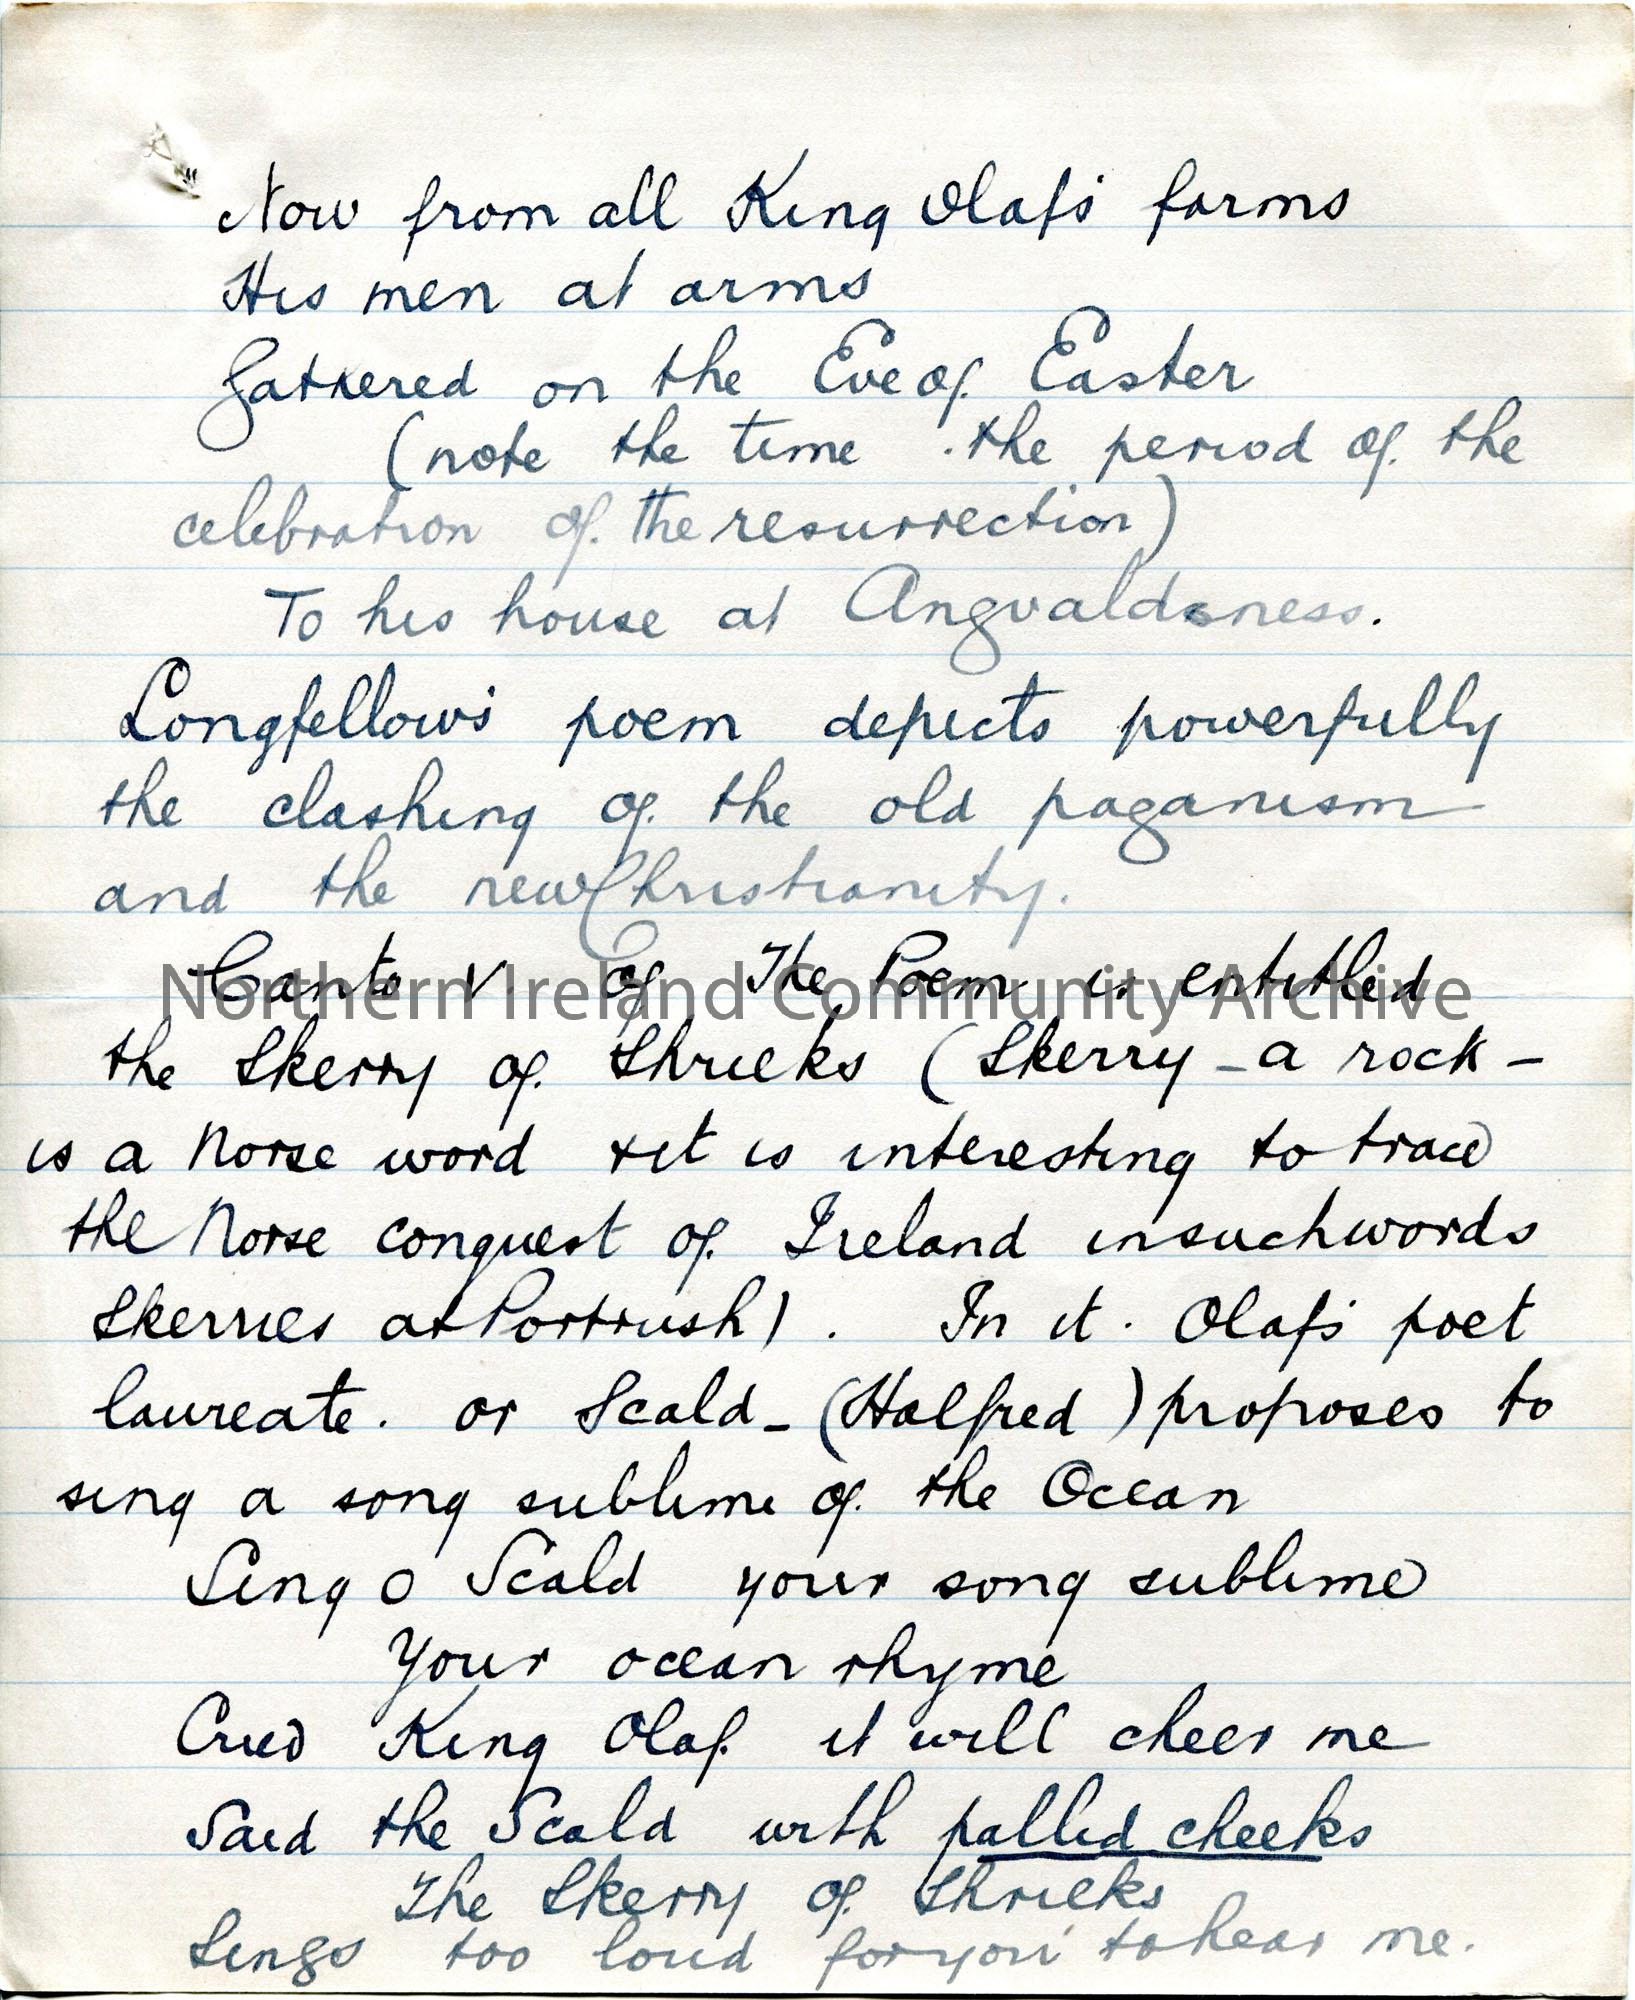 Now from all King Olaf's farms
His men at arms
Gathered on the Eve of Easter
(note the time . the period of the
celebration of the resurrection)
To his house at Angvaldsness.
Longfellow's poem depicts powerfully
the clashing of the old paganism
and the new Christianity.
Canto V. of The Poem is entitled
Northern Ireland Community Archive
the Skerry of Shrieks (Skerry - a rock -
is a Norse word & it is interesting to trace
the Norse conquest of Ireland in such words
Skerries at Portrush). In it. Olaf's poet
laureate. or Scald - (Halfred) proposes to
sing a song sublime of the Ocean
Sing O Scald your song sublime
Your ocean rhyme
Cried King Olaf it will cheer me
Said the Scald with pallid cheeks
The Skerry of Shrieks
Sings too loud for you to hear me.